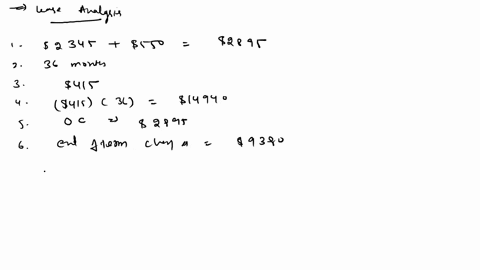 → Lease Analysis
1. $2345 + $550 = $2895
2. 36 months
3. $415
4. ($415) (36) = $14940
5. O C = $2895
6. end of term = $9380